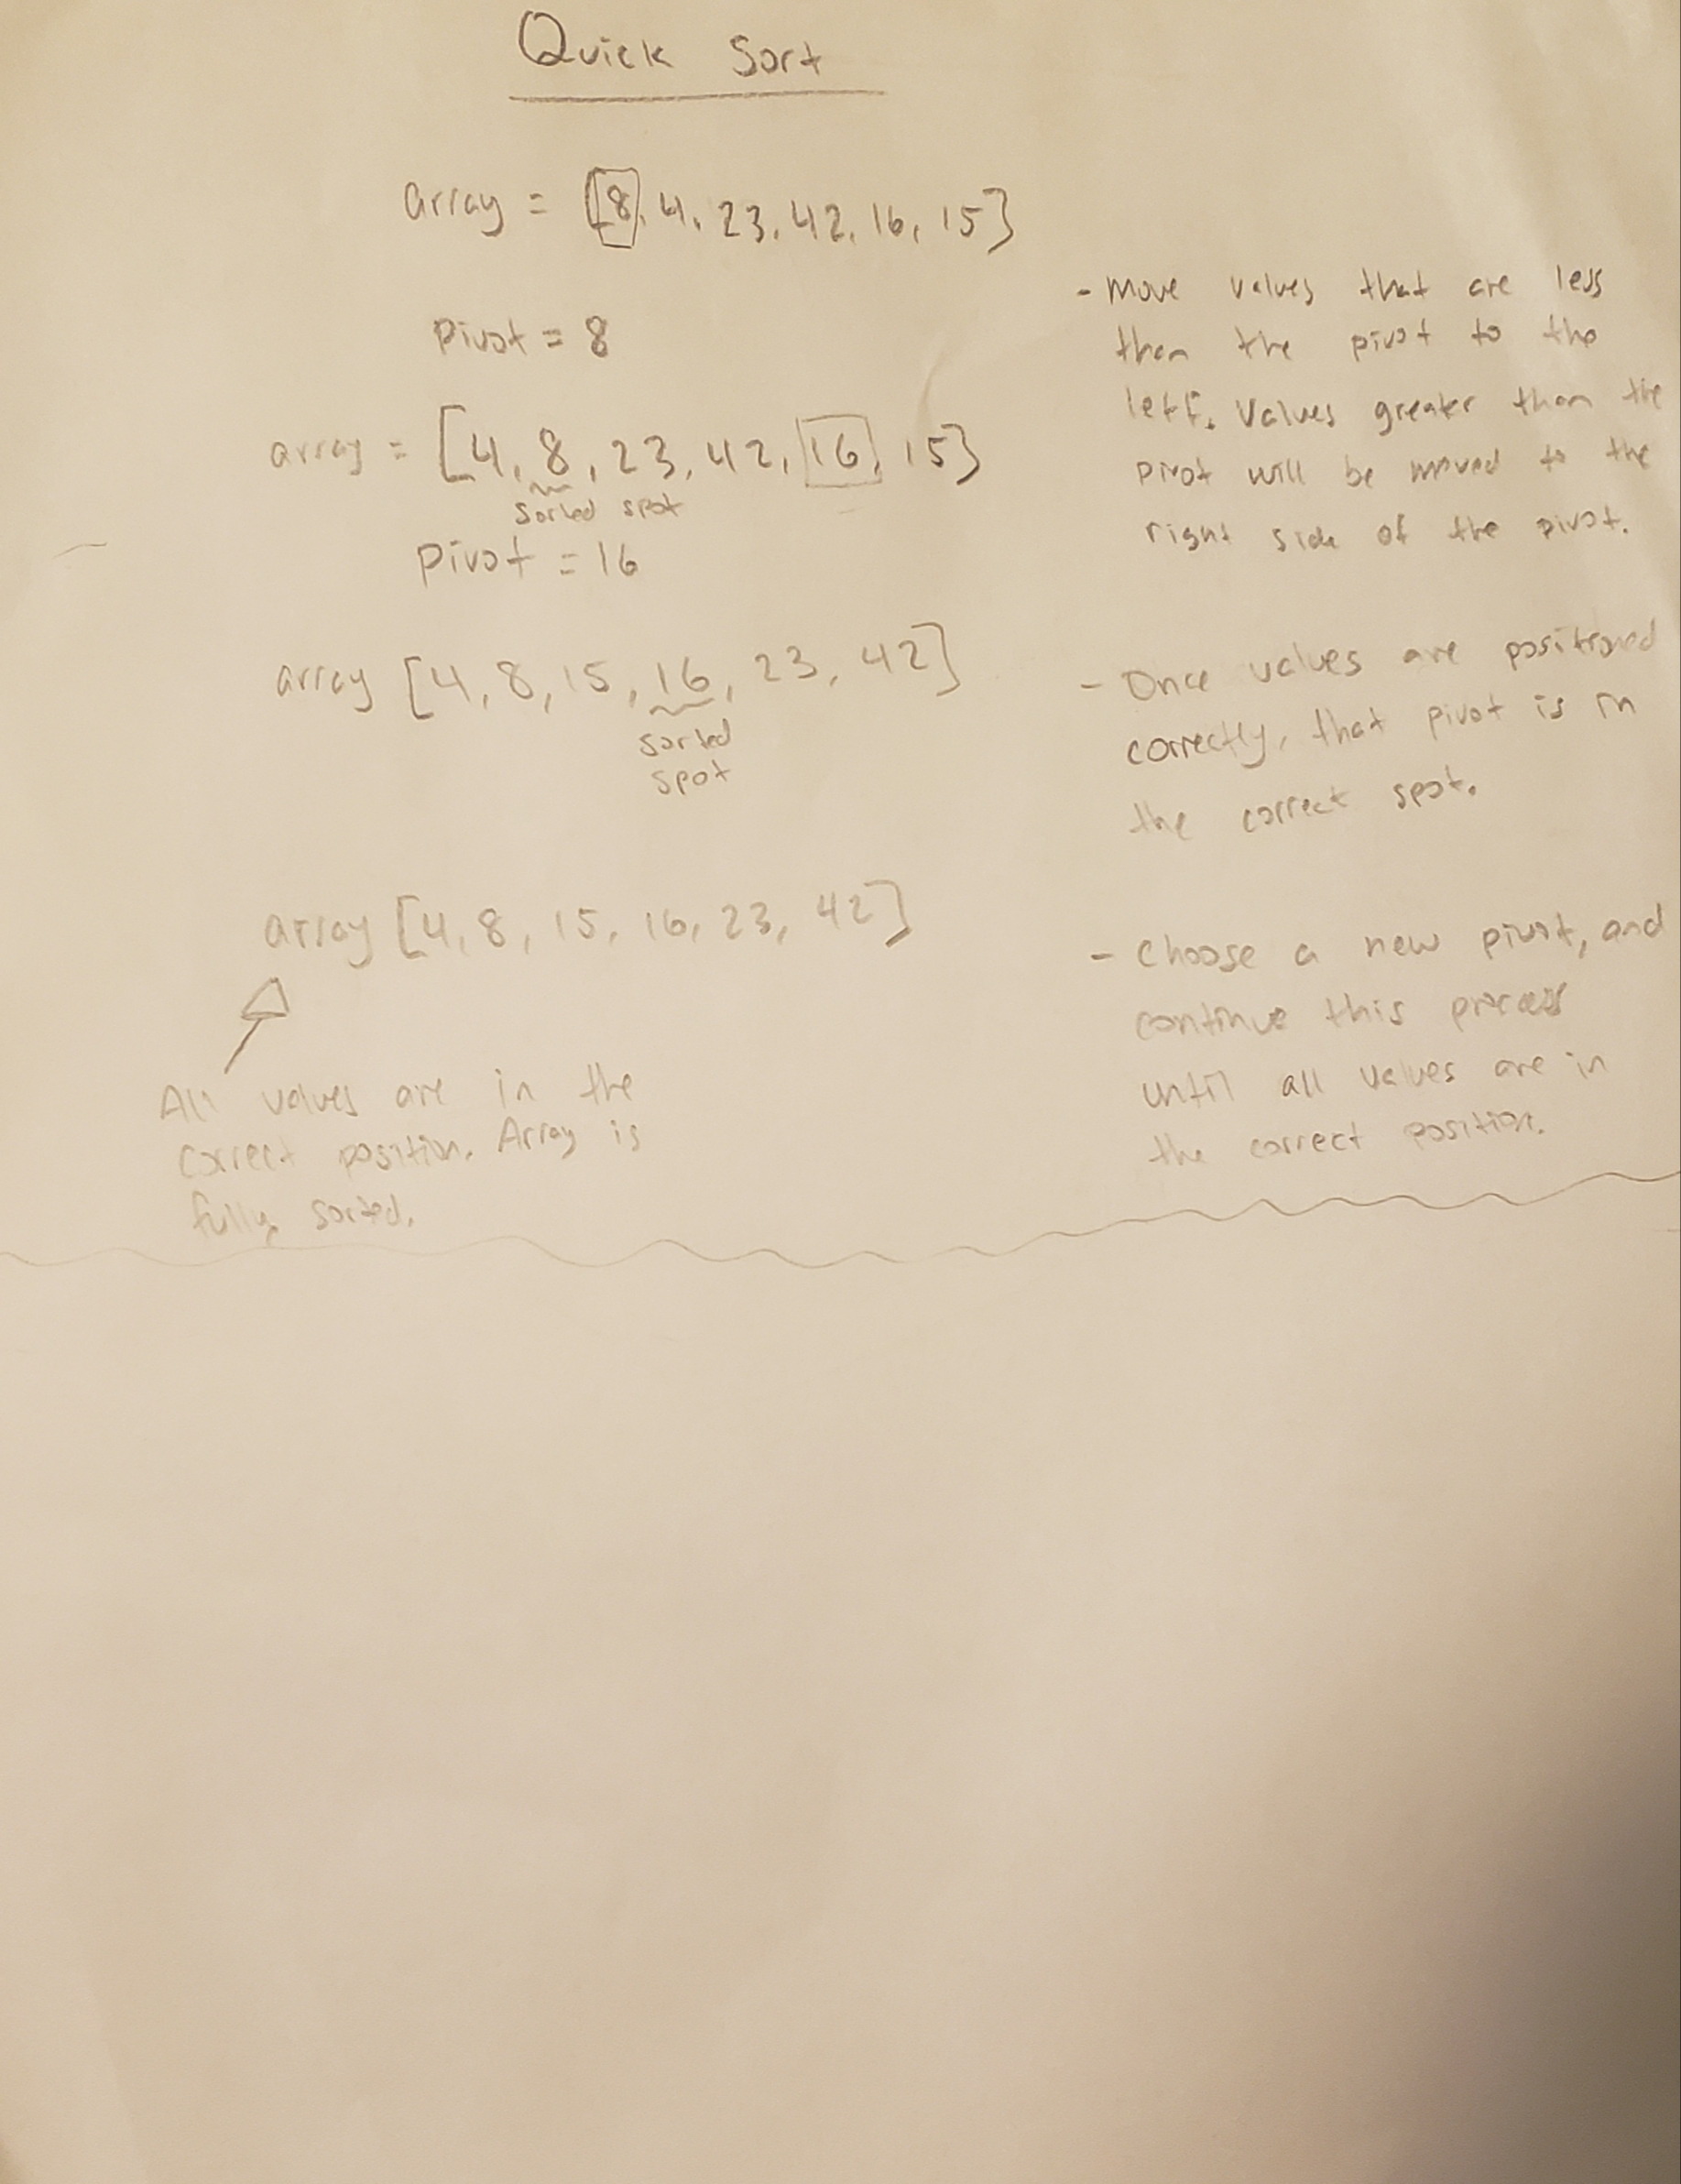 Quick Sort
array = [8, 4, 23, 42, 16, 15]
pivot = 8
array = [4, 8, 23, 42, 16, 15]
sorted spot
pivot = 16
array [4, 8, 15, 16, 23, 42]
sorted
spot
array [4, 8, 15, 16, 23, 42]
All values are in the
correct position. Array is
fully sorted.
- Move values that are less
than the pivot to the
left. Values greater than the
pivot will be moved to the
right side of the pivot.
- Once values are positioned
correctly, that pivot is in
the correct spot.
- Choose a new pivot, and
continue this process
until all values are in
the correct position.